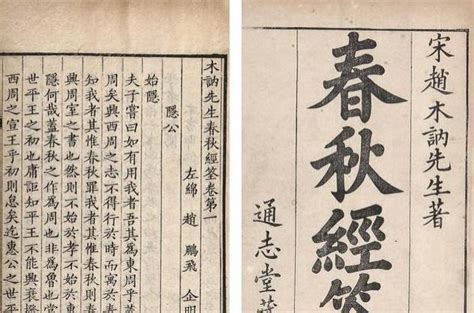 宋趙木訥先生著
春秋經筌
通志堂藏
木訥先生春秋經筌卷第一
左綿 趙 鵬飛 企明
隱公
始隱
夫子嘗曰如有用我者吾其為東周乎
周矣興西周之志不得行於時而寓於
知我者其惟春秋罪我者其惟春秋則
興周室之書也然則不始於孝不始於
何哉蓋春秋之作為周也非為魯也當
世平王之初也庸詎知平王不能興衰撥
西周之宣王乎初則怠矣迄惠公之世平